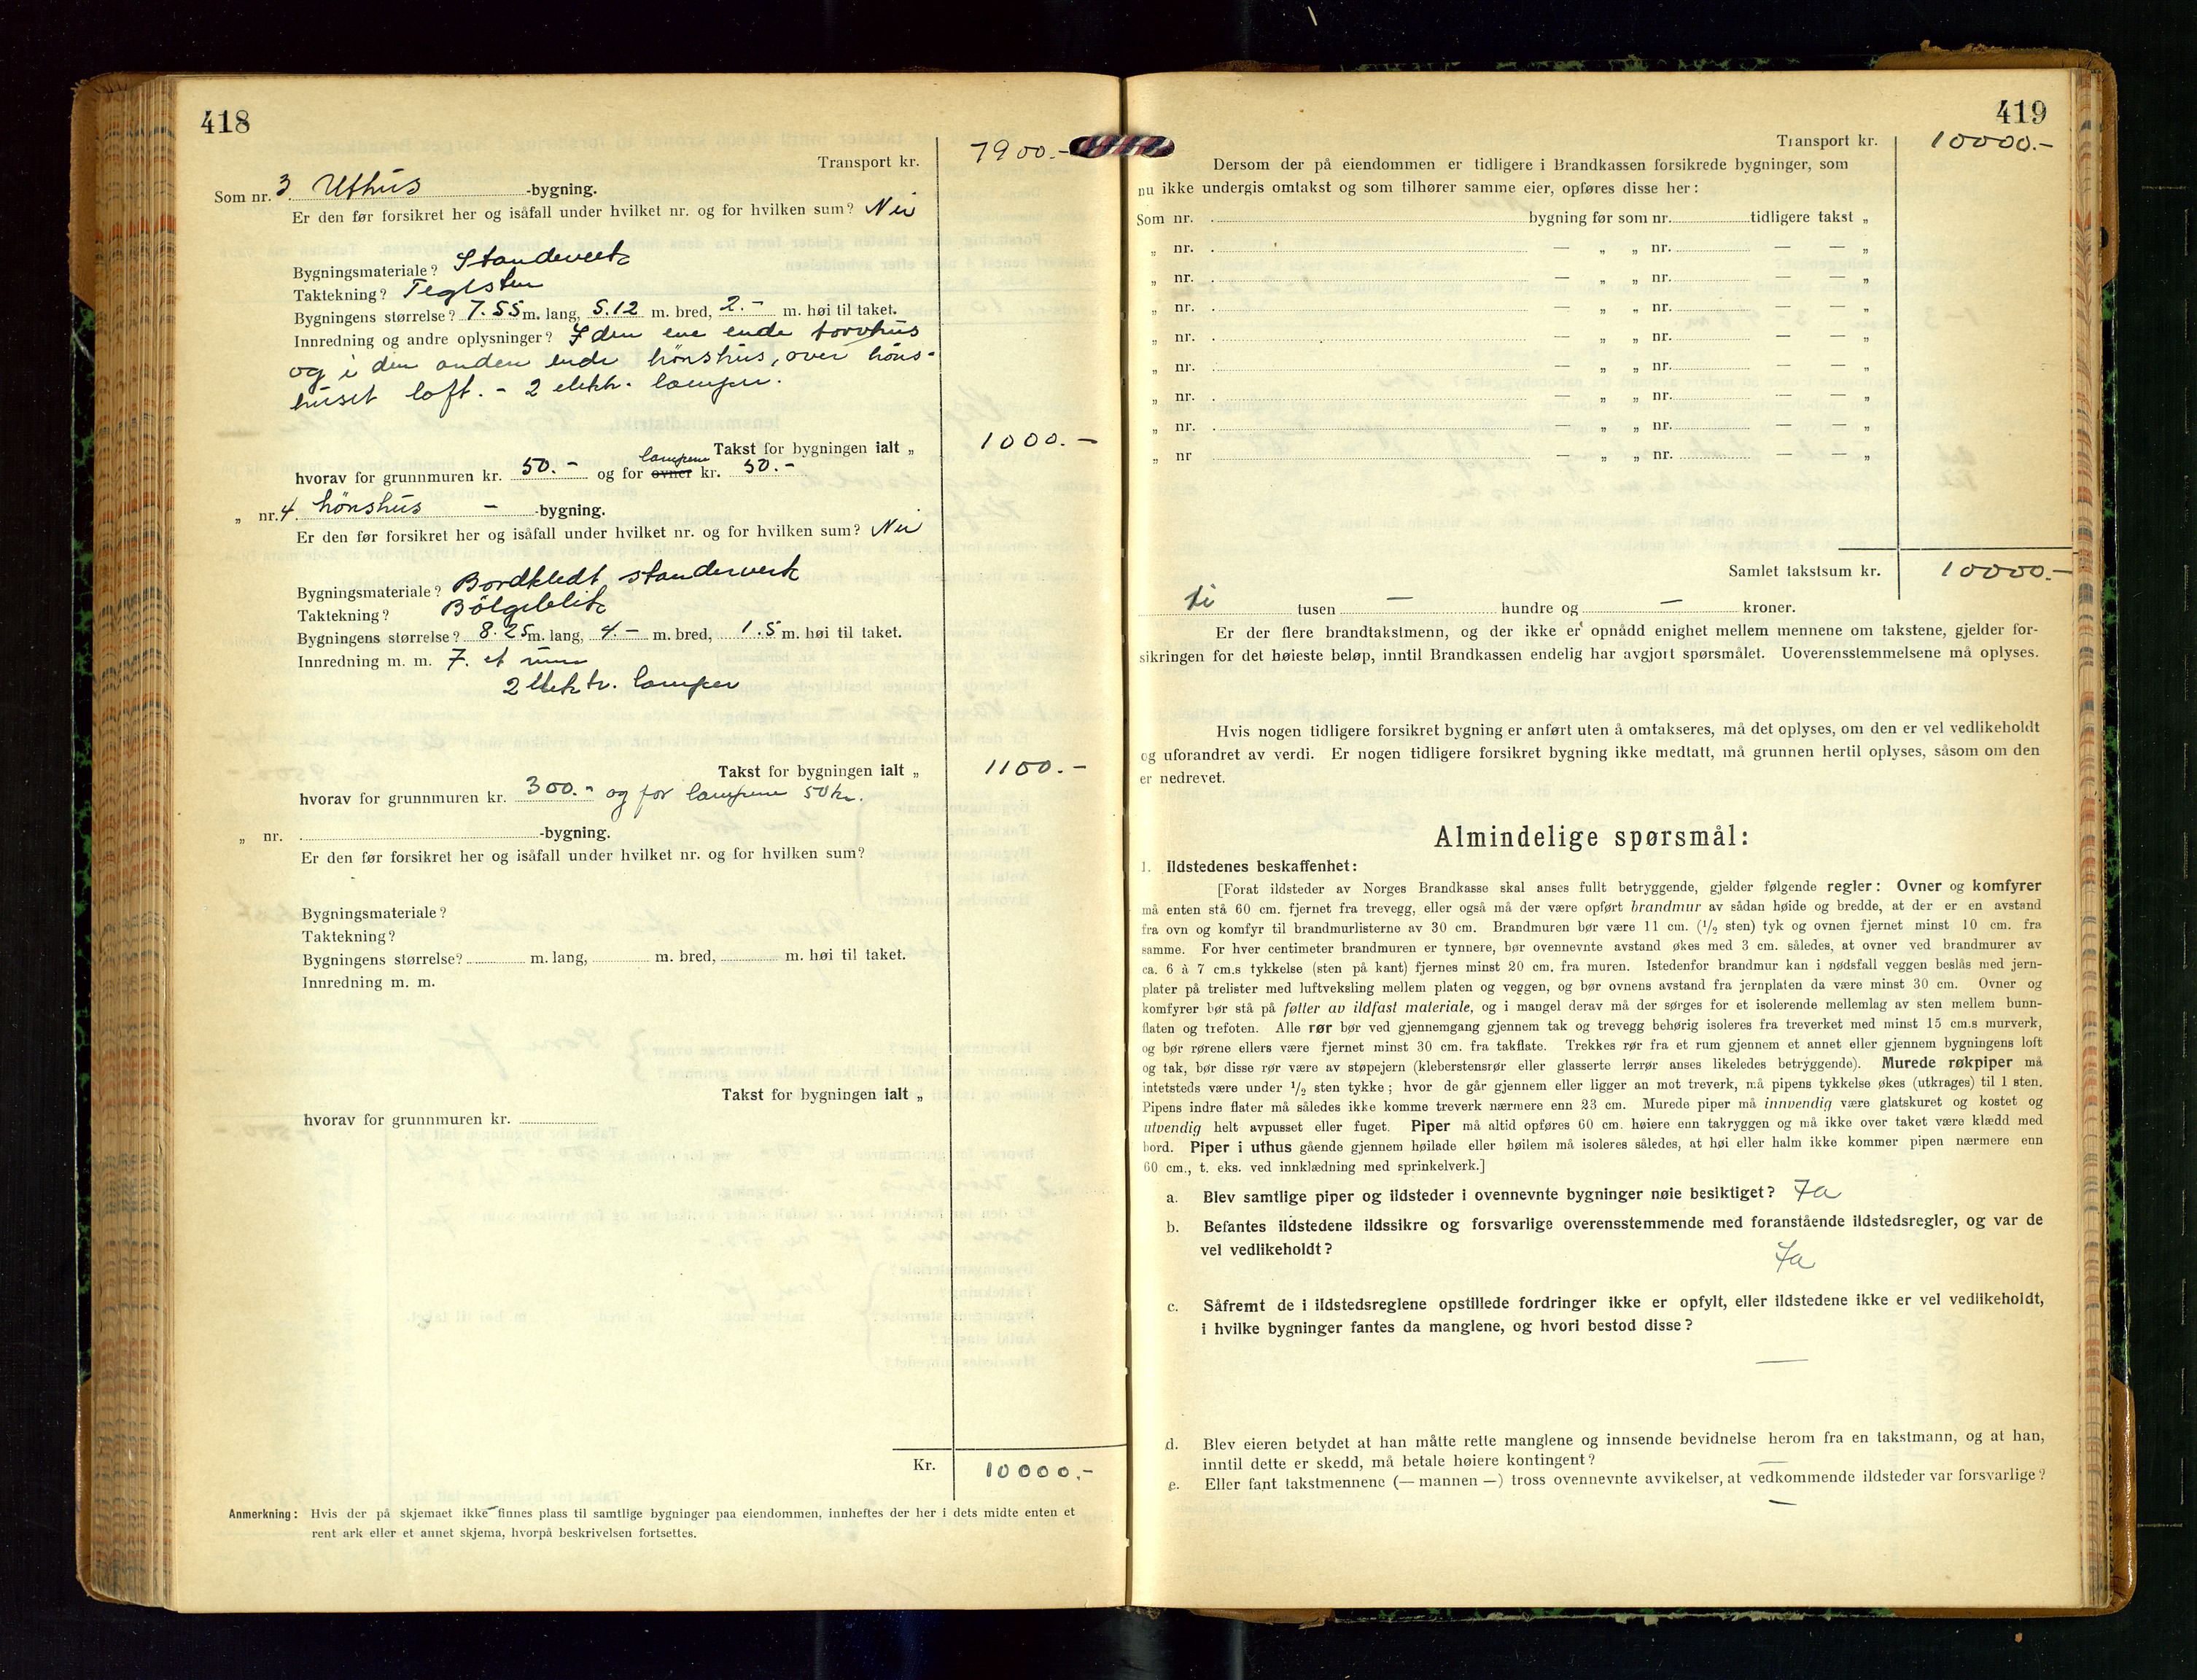 418
Transport kr. 7900.-
Som nr. 3. Uthus -bygning.
Er den før forsikret her og isåfall under hvilket nr. og for hvilken sum? Nei
Bygningsmateriale? Standverk
Taktekning? Teglsten
Bygningens størrelse? 7.55 m. lang, 5.12 m. bred, 2.- m. høi til taket.
Innredning og andre oplysninger? I den ene ende torvhus
og i den anden ende hönshus, over höns-
huset loft. - 2 elektr. lamper.
Takst for bygningen ialt „ 1000.-
lampene
hvorav for grunnmuren kr. 50.- og for ovner kr. 50.-
„ nr. 4. hönshus - -bygning.
Er den før forsikret her og isåfall under hvilket nr. og for hvilken sum? Nei
Bygningsmateriale? Bordkledt standerverk
Taktekning? Bölgeblik
Bygningens størrelse? 8.25 m. lang, 4.- m. bred, 1.5 m. høi til taket.
Innredning m. m. I. et rum
2 elektr. lamper
Takst for bygningen ialt „ 1100.-
hvorav for grunnmuren kr. 300.- og for lampene 50 kr.
„ nr. -bygning.
Er den før forsikret her og isåfall under hvilket nr. og for hvilken sum?
Bygningsmateriale?
Taktekning?
Bygningens størrelse? m. lang, m. bred, m. høi til taket.
Innredning m. m.
Takst for bygningen ialt „
hvorav for grunnmuren kr.
Kr. 10000.-
Anmerkning: Hvis der på skjemaet ikke finnes plass til samtlige bygninger paa eiendommen, innheftes der her i dets midte enten et
rent ark eller et annet skjema, hvorpå beskrivelsen fortsettes.
419
Transport kr. 10000.-
Dersom der på eiendommen er tidligere i Brandkassen forsikrede bygninger, som
nu ikke undergis omtakst og som tilhører samme eier, opføres disse her:
Som nr. bygning før som nr. tidligere takst „
„ nr. — „ „ nr. — — „
„ nr. — „ „ nr. — — „
„ nr. — „ „ nr. — — „
„ nr. — „ „ nr. — — „
„ nr. — „ „ nr. — — „
„ nr. — „ „ nr. — — „
„ nr. — „ „ nr. — — „
„ nr — „ „ nr. — — „
Samlet takstsum kr. 10000.-
ti tusen — hundre og — kroner.
Er der flere brandtakstmenn, og der ikke er opnådd enighet mellem mennene om takstene, gjelder for-
sikringen for det høieste beløp, inntil Brandkassen endelig har avgjort spørsmålet. Uoverensstemmelsene må oplyses.
Hvis nogen tidligere forsikret bygning er anført uten å omtakseres, må det oplyses, om den er vel vedlikeholdt
og uforandret av verdi. Er nogen tidligere forsikret bygning ikke medtatt, må grunnen hertil oplyses, såsom om den
er nedrevet.
Almindelige spørsmål:
1. Ildstedenes beskaffenhet:
[Forat ildsteder av Norges Brandkasse skal anses fullt betryggende, gjelder følgende regler: Ovner og komfyrer
må enten stå 60 cm. fjernet fra trevegg, eller også må der være opført brandmur av sådan høide og bredde, at der er en avstand
fra ovn og komfyr til brandmurlisterne av 30 cm. Brandmuren bør være 11 cm. (1/2 sten) tyk og ovnen fjernet minst 10 cm. fra
samme. For hver centimeter brandmuren er tynnere, bør ovennevnte avstand økes med 3 cm. således, at ovner ved brandmurer av
ca. 6 à 7 cm.s tykkelse (sten på kant) fjernes minst 20 cm. fra muren. Istedenfor brandmur kan i nødsfall veggen beslås med jern-
plater på trelister med luftveksling mellem platen og veggen, og bør ovnens avstand fra jernplaten da være minst 30 cm. Ovner og
komfyrer bør stå på føtter av ildfast materiale, og i mangel derav må der sørges for et isolerende mellemlag av sten mellem bunn-
flaten og trefoten. Alle rør bør ved gjennemgang gjennem tak og trevegg behørig isoleres fra treverket med minst 15 cm.s murverk,
og bør rørene ellers være fjernet minst 30 cm. fra takflate. Trekkes rør fra et rum gjennem et annet eller gjennem bygningens loft
og tak, bør disse rør være av støpejern (kleberstensrør eller glasserte lerrør anses likeledes betryggende). Murede røkpiper må
intetsteds være under 1/2 sten tykke; hvor de går gjennem eller ligger an mot treverk, må pipens tykkelse økes (utkrages) til 1 sten.
Pipens indre flater må således ikke komme treverk nærmere enn 23 cm. Murede piper må innvendig være glatskuret og kostet og
utvendig helt avpusset eller fuget. Piper må altid opføres 60 cm. høiere enn takryggen og må ikke over taket være klædd med
bord. Piper i uthus gående gjennem høilade eller høilem må isoleres således, at høi eller halm ikke kommer pipen nærmere enn
60 cm., t. eks. ved innklædning med sprinkelverk.]
a. Blev samtlige piper og ildsteder i ovennevnte bygninger nøie besiktiget? Ja
b. Befantes ildstedene ildssikre og forsvarlige overensstemmende med foranstående ildstedsregler, og var de
vel vedlikeholdt?
Ja
c. Såfremt de i ildstedsreglene opstillede fordringer ikke er opfylt, eller ildstedene ikke er vel vedlikeholdt,
i hvilke bygninger fantes da manglene, og hvori bestod disse?
—
d. Blev eieren betydet at han måtte rette manglene og innsende bevidnelse herom fra en takstmann, og at han,
inntil dette er skedd, må betale høiere kontingent? —
e. Eller fant takstmennene (— mannen —) tross ovennevnte avvikelser, at vedkommende ildsteder var forsvarlige?
—